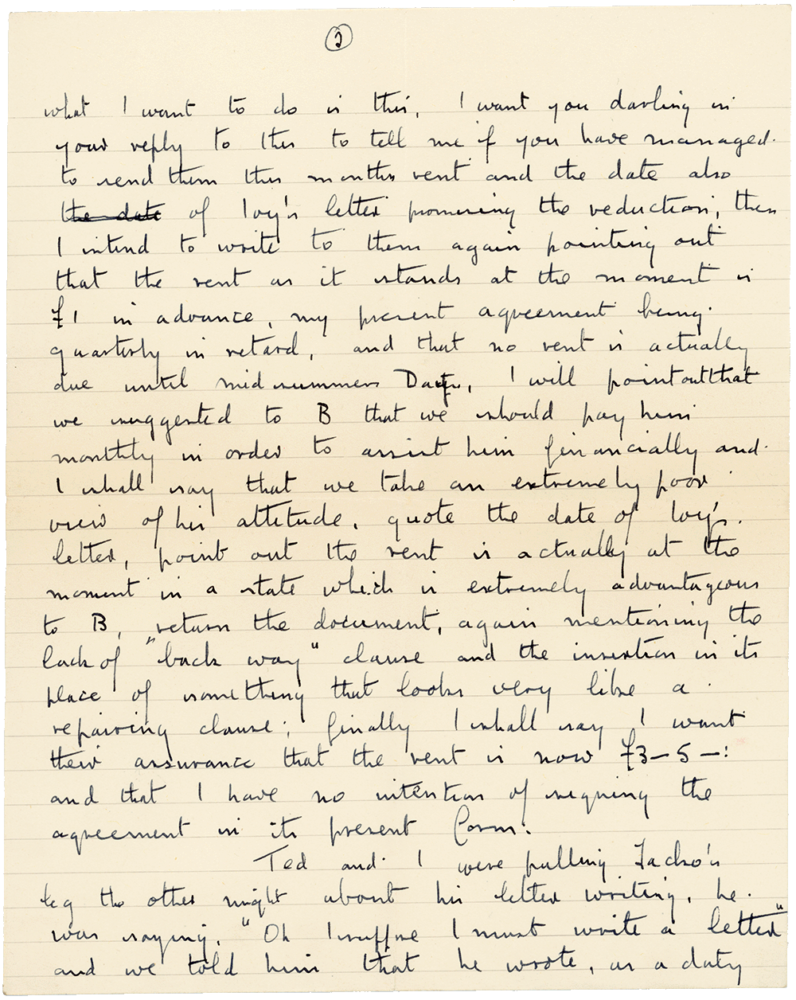 2
what I want to do is this, I want you darling in
your reply to this to tell me if you have managed
to send them this months rent and the date also
the date of Ivy's letter promising the reduction, then
I intend to write to them again pointing out
that the rent as it stands at the moment is
£1 in advance, my present agreement being
quarterly in retard, and that no rent is actually
due until midsummers Day, I will point out that
we suggested to B that we should pay him
monthly in order to assist him financially and
I shall say that we take an extremely poor
view of his attitude, quote the date of Ivy's
letter, point out the rent is actually at the
moment in a state which is extremely advantageous
to B, return the document, again mentioning the
lack of "back way" clause and the insertion in its
place of something that looks very like a
repairing clause; finally I shall say I want
their assurance that the rent is now £3-5-:
and that I have no intention of signing the
agreement in its present form.
Ted and I were pulling Jacko's
leg the other night about his letter writing, he
was saying, "Oh I suppose I must write a letter"
and we told him that he wrote, as a duty